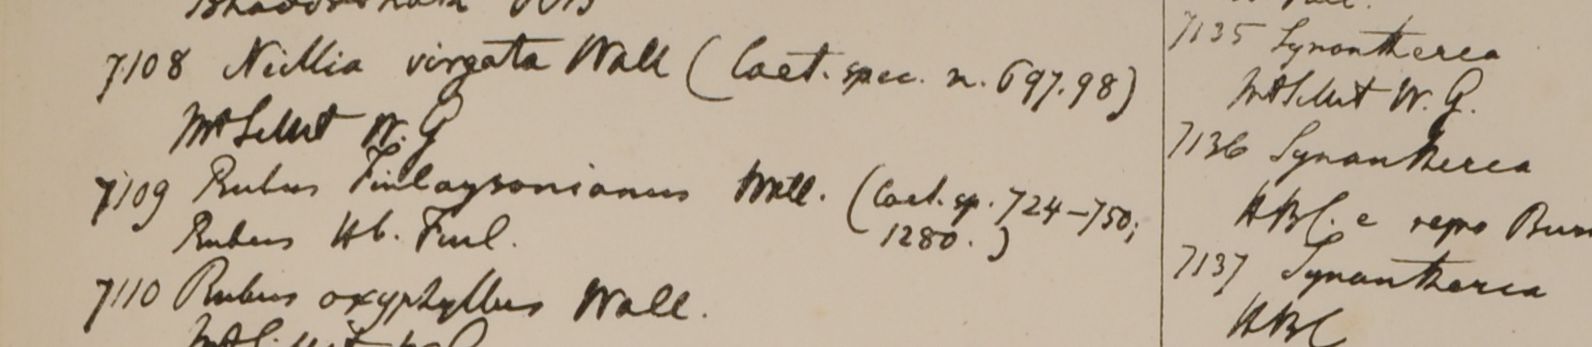 7108 Neillia virgata Wall (Caet. spec. n. 697.98)
Mt Sillet W. G
7109 Rubus Finlaysonianus Wall. (Caet. sp. 724–750;
1280.)
Rubus Hb. Finl.
7110 Rubus oxyphyllus Wall.
7135 Synantherea
Mt Sillet W. G.
7136 Synantherea
HBC. e regno Burm
7137 Synantherea
HBC